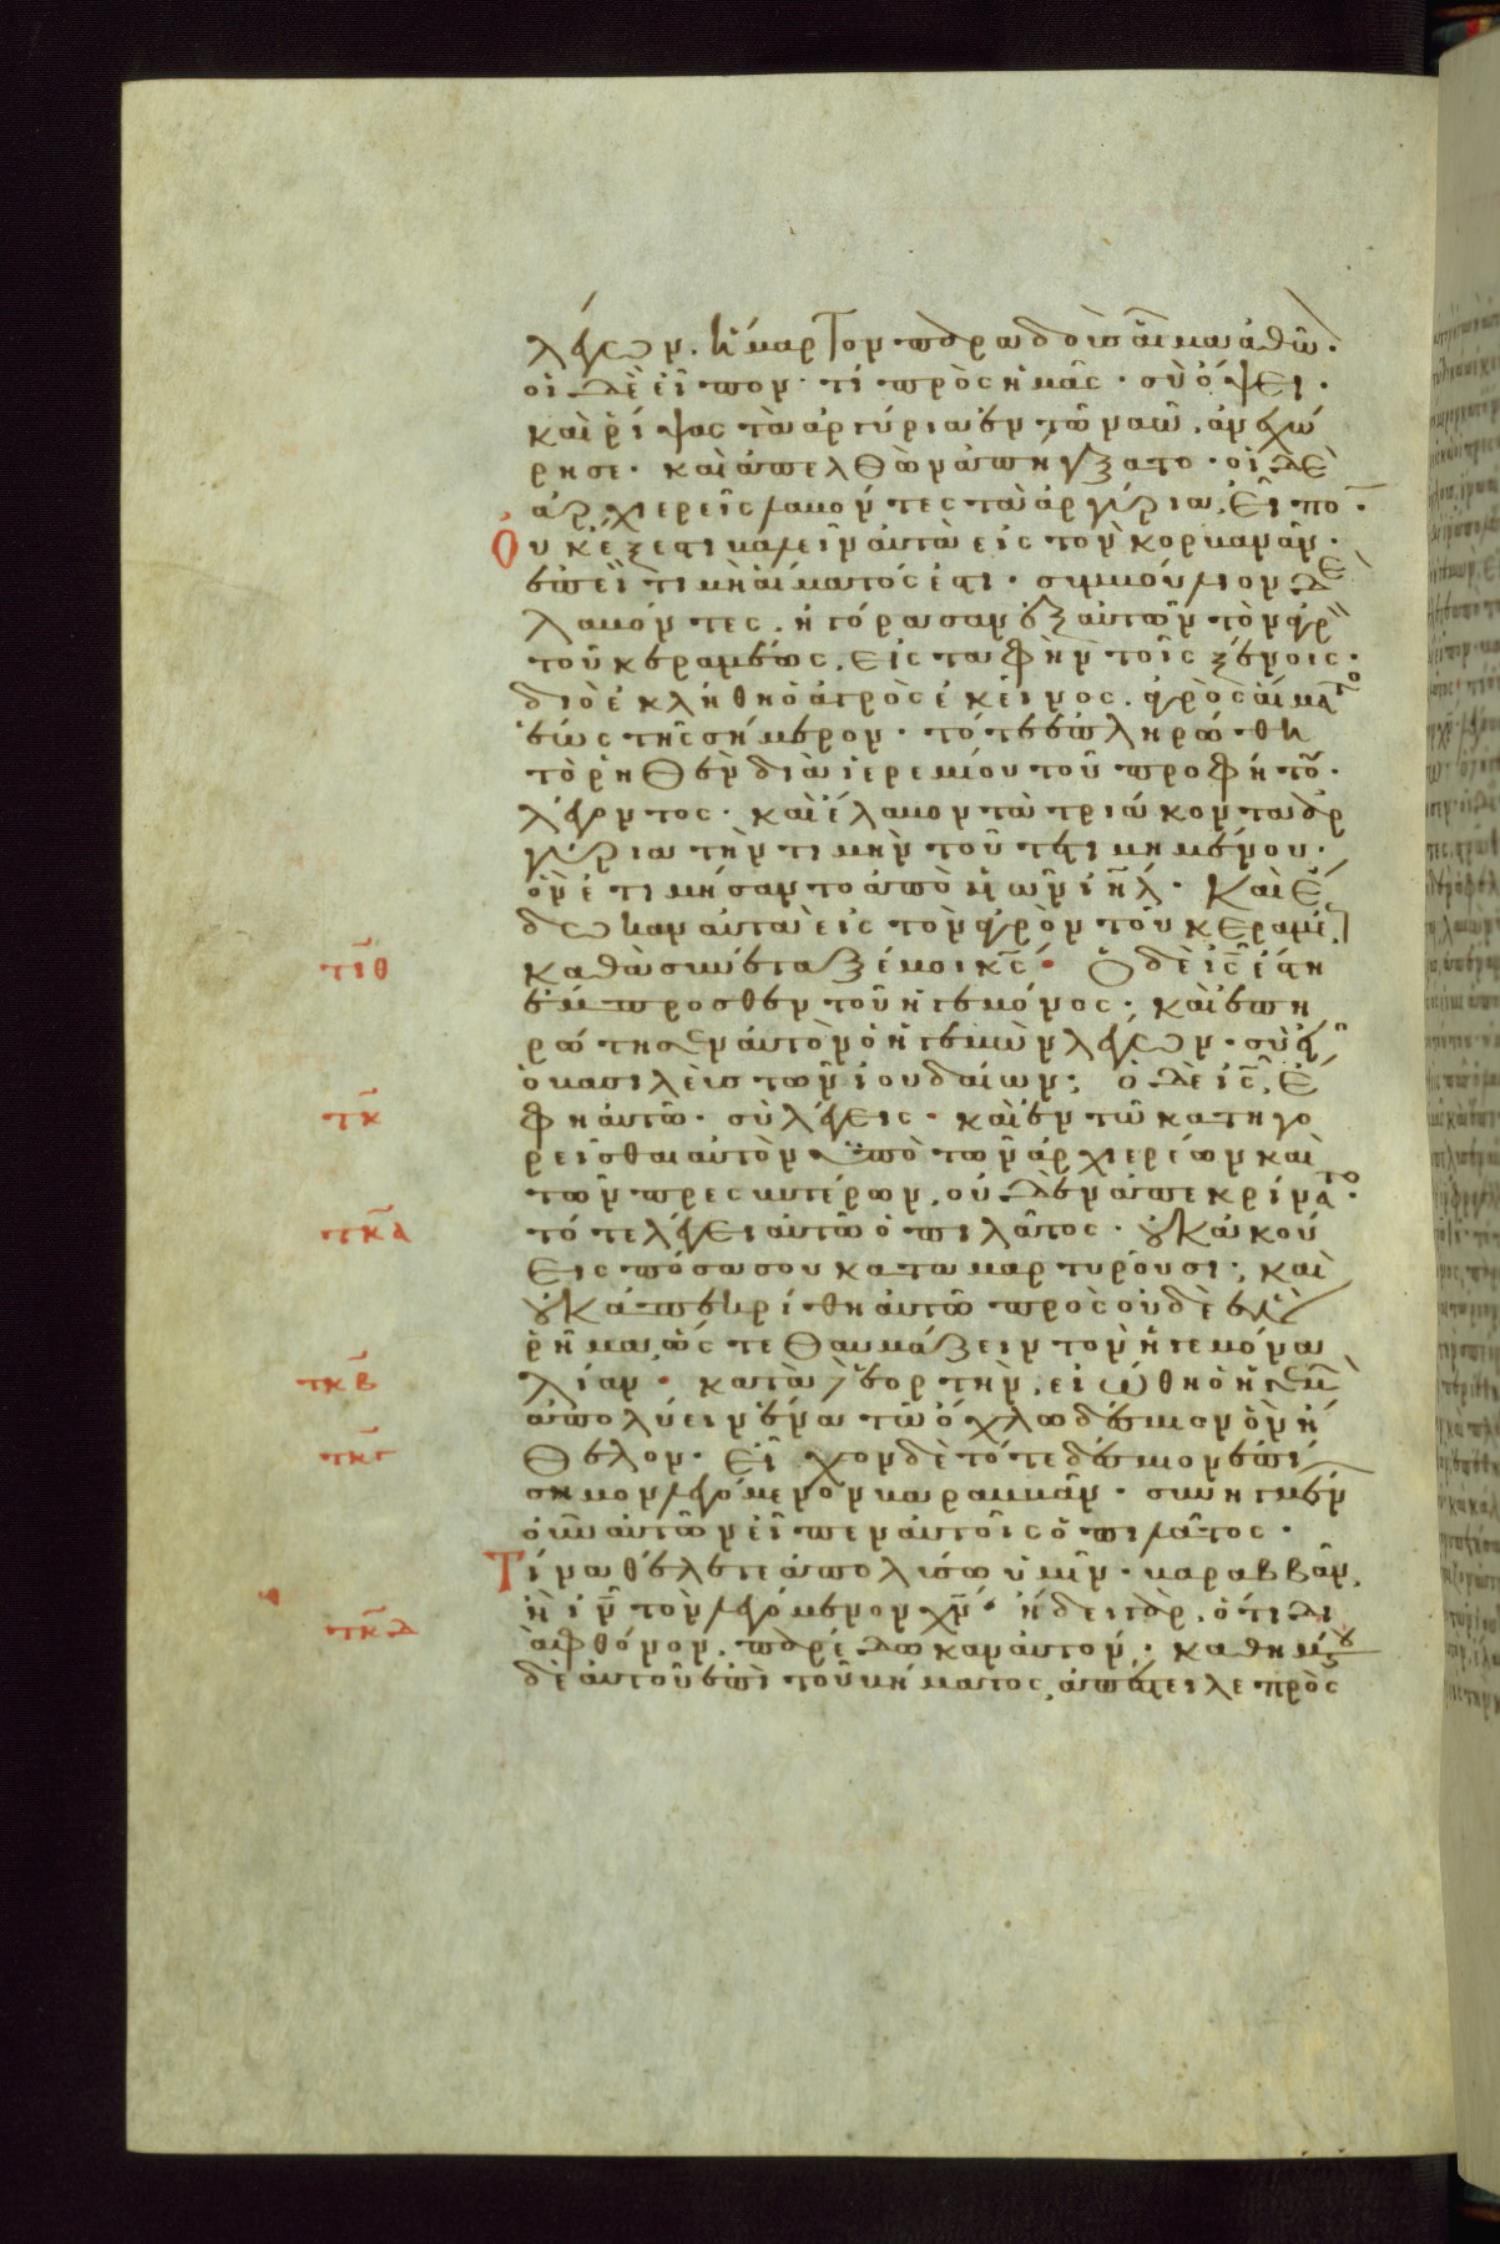 λέγων. ἥμαρτον παραδοὺς αἷμα ἀθῶον.
οἱ δὲ εἶπον· τί πρὸς ἡμᾶς· σὺ ὄψει·
καὶ ῥίψας τὰ ἀργύρια ἐν τῶ ναῶ, ἀνεχώ
ρησε· καὶ ἀπελθὼν ἀπήγξατο· οἱ δὲ
ἀρχιερεῖς λαβόντες τὰ ἀργύρια, εἶπον·
Οὐκ ἔξεστι βαλεῖν αὐτὰ εἰς τὸν κορβανᾶν·
ἐπεὶ τιμὴ αἵματός ἐστι· συμβούλιον δὲ
λαβόντες, ἠγόρασαν ἐξ αὐτῶν τὸν ἀγρὸν
τοῦ κεραμέως, εἰς ταφὴν τοῖς ξένοις·
διὸ ἐκλήθη ὁ ἀγρὸς ἐκεῖνος, ἀγρὸς αἵματο
ἕως τῆς σήμερον· τότε ἐπληρώθη
τὸ ῥηθὲν διὰ ἱερεμίου τοῦ προφήτου·
λέγοντος· καὶ ἔλαβον τὰ τριάκοντα ἀρ
γύρια τὴν τιμὴν τοῦ τετιμημένου·
ὃν ἐτιμήσαντο ἀπὸ υἱῶν ιηλ· Καὶ ἔ
δωκαν αὐτὰ εἰς τὸν ἀγρὸν τοῦ κεραμέως
τιθ καθὰ συνέταξέ μοι κς· Ὁ δὲ ις ἔστη
ἔμπροσθεν τοῦ ἡγεμόνος· καὶ ἐπη
ρώτησεν αὐτὸν ὁ ἡγεμὼν λέγων· σὺ εἶ
ὁ βασιλεὺς τῶν ἰουδαίων; ὁ δὲ ις, ἔ
τκ φη αὐτῶ· σὺ λέγεις· καὶ ἐν τῶ κατηγο
ρεῖσθαι αὐτὸν ὑπὸ τῶν ἀρχιερέων καὶ
τῶν πρεσβυτέρων, οὐδὲν ἀπεκρίνατο·
τκα τότε λέγει αὐτῶ ὁ πιλᾶτος· οὐκ ἀκού
εις πόσα σου καταμαρτυροῦσι; καὶ
οὐκ ἀπεκρίθη αὐτῶ πρὸς οὐδὲ ἓν
ῥῆμα, ὥστε θαυμάζειν τὸν ἡγεμόνα
τκβ λίαν· κατὰ δὲ ἑορτὴν, εἰώθη ὁ ἡγεμὼν
ἀπολύειν ἕνα τῶ ὄχλω δέσμιον ὃν ἤ
τκγ θελον· εἶχον δὲ τότε δέσμιον ἐπί
σημον λεγόμενον βαραββᾶν· συνηγμέν
ὁ οὖν αὐτῶν εἶπεν αὐτοῖς ὁ πιλᾶτος·
Τίνα θέλετε ἀπολύσω ὑμῖν· βαραββᾶν,
ἢ ιν τὸν λεγόμενον χν· ἤδει γὰρ, ὅτι δι
τκδ ὰ φθόνον, παρέδωκαν αὐτόν· καθημένου
δὲ αὐτοῦ ἐπὶ τοῦ βήματος, ἀπέστειλε πρὸς